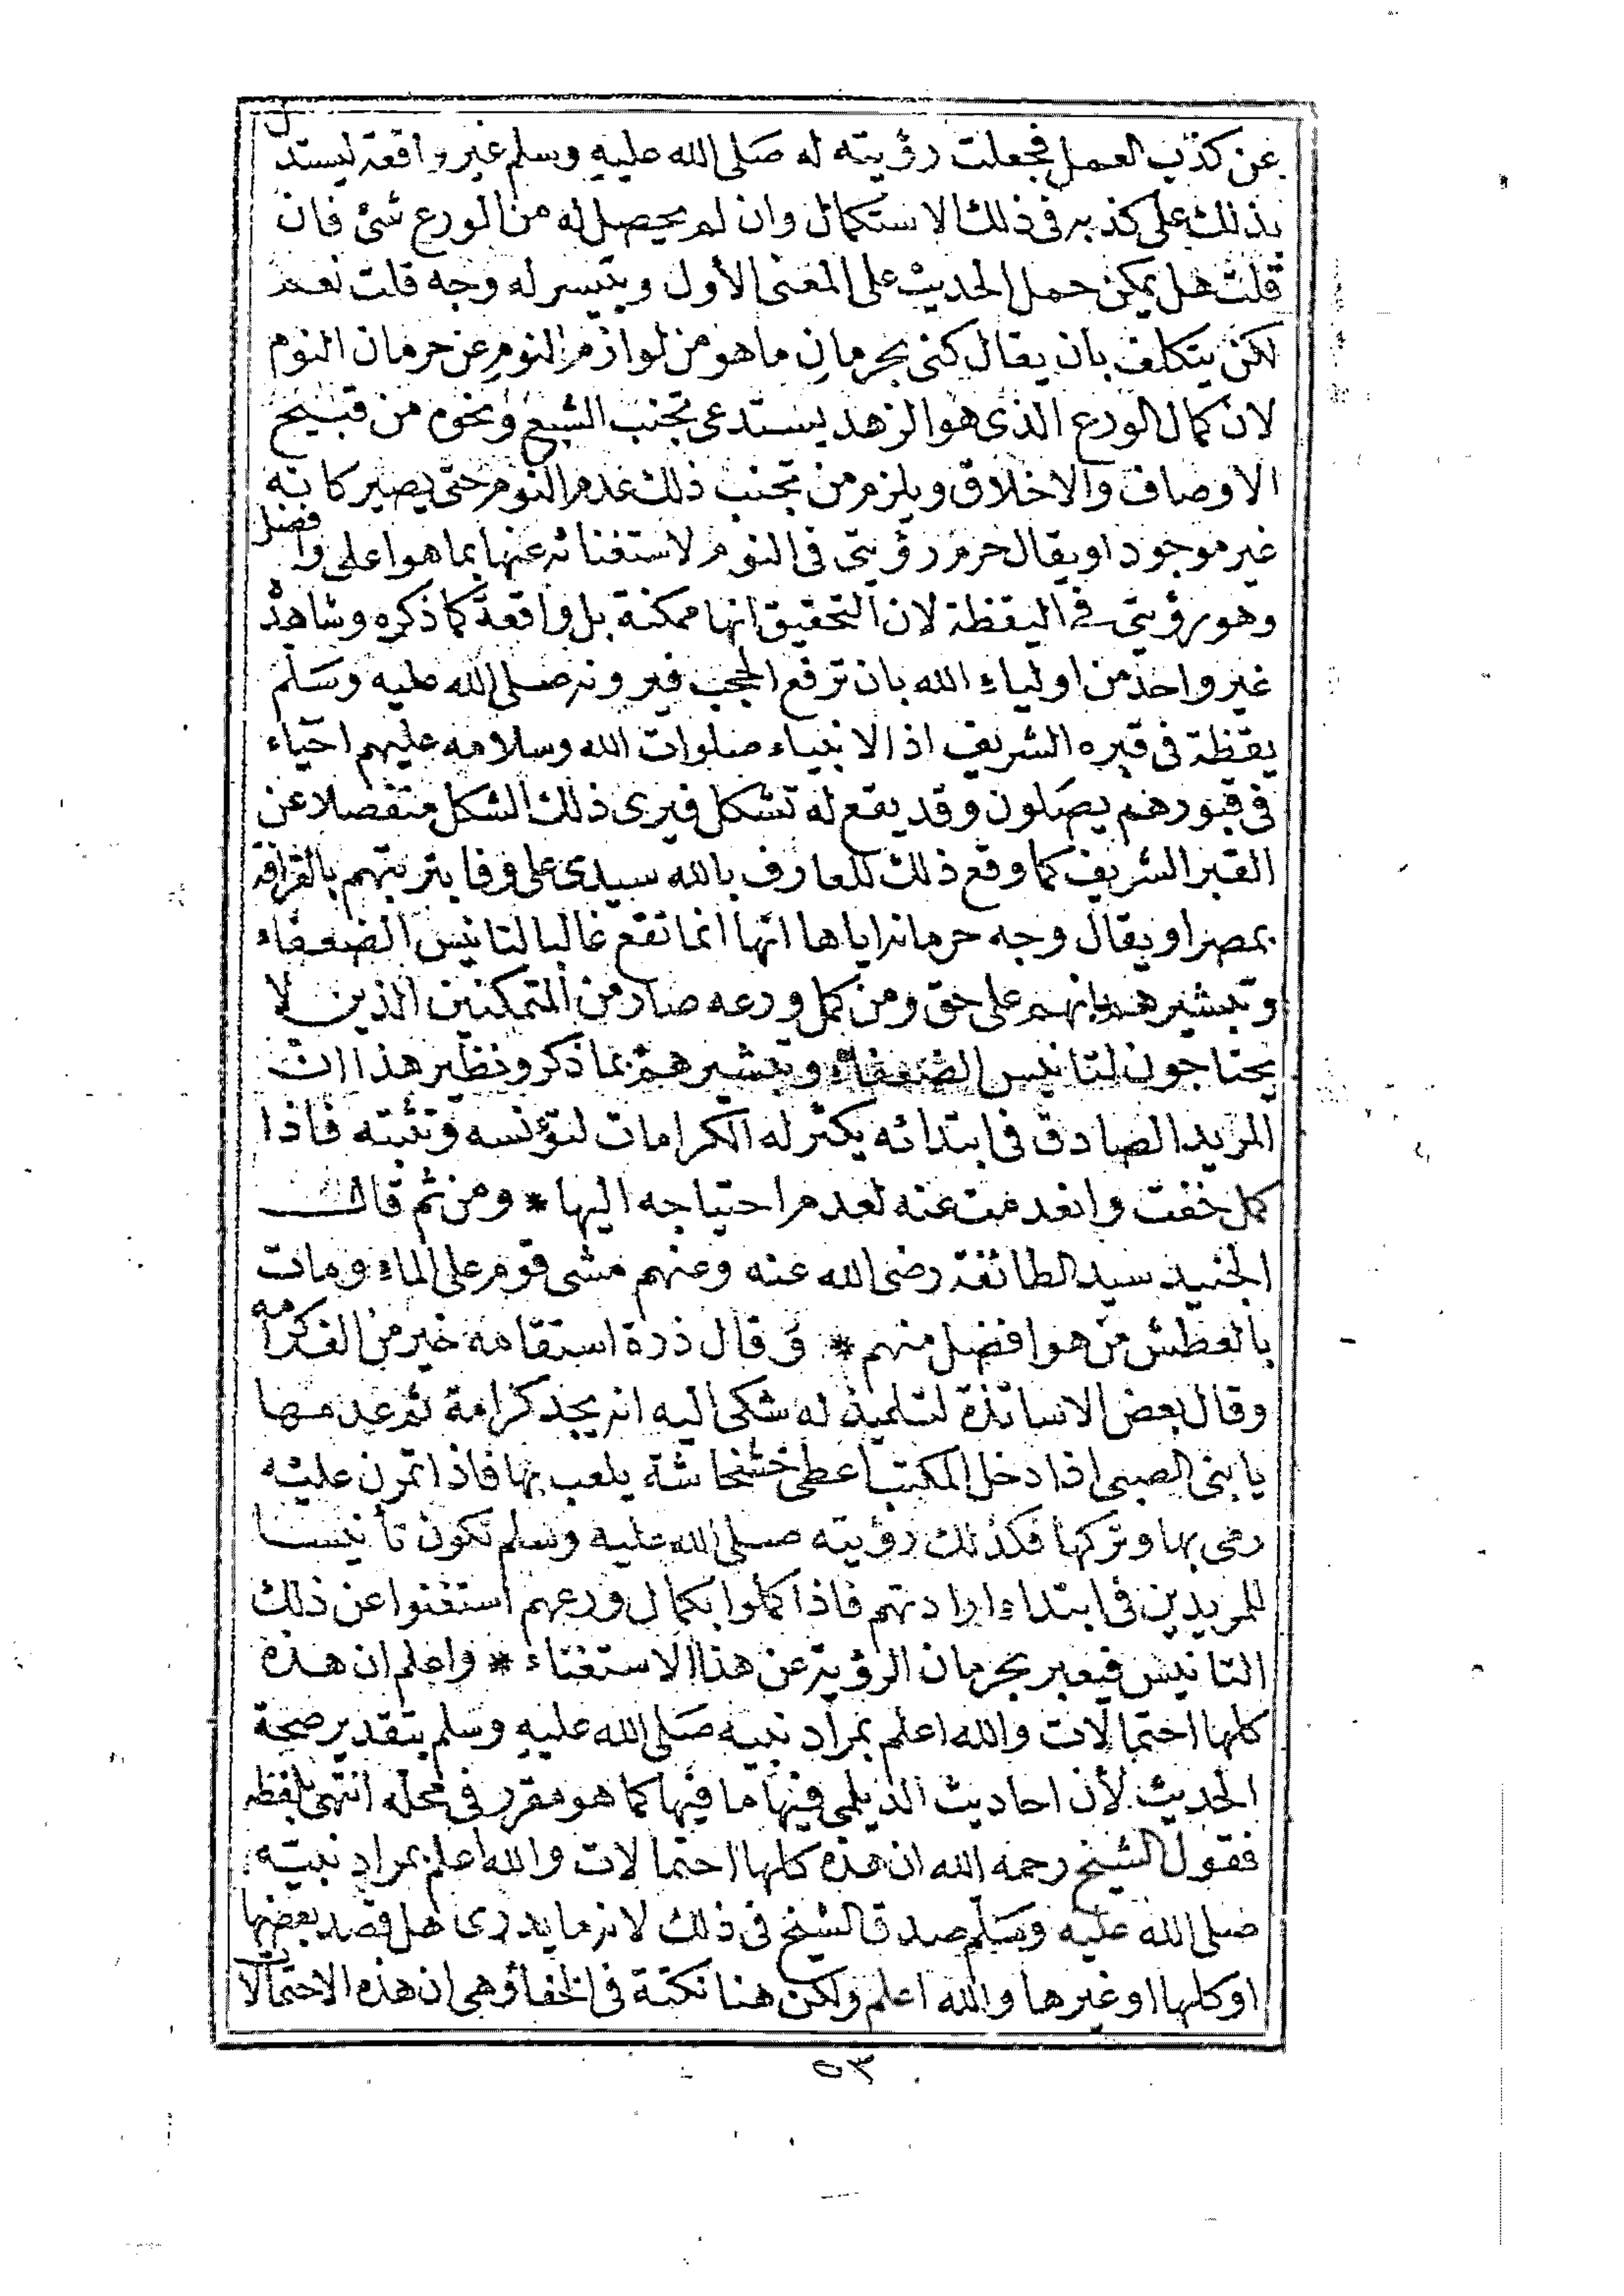 عن كذب العمل فجعلت رؤيته له صلى الله عليه وسلم غير واقعة ليستدل
بذلك على كذبه فى ذلك الاستكمال وان لم يحصل له من الورع شئ فان
قلت هل يمكن حمل الحديث على المعنى الأول ويتيسر له وجه قلت نعم
لكن يتكلف بان يقال كنى بحرمان ما هو من لوازم النوم عن حرمان النوم
لان كمال الورع الذى هو الزهد يستدعى تجنب الشبع ونحوه من قبيح
الاوصاف والاخلاق ويلزم من تجنب ذلك عدم النوم حتى يصير كانه
غير موجود او يقال حرم رؤيتى فى النوم لاستغنائه عنها بما هو اعلى وافضل
وهو رؤيتى فى اليقظة لان التحقيق انها ممكنة بل واقعة كما ذكره وشاهده
غير واحد من اولياء الله بان ترفع الحجب فيرونه صلى الله عليه وسلم
يقظة فى قبره الشريف اذ الانبياء صلوات الله وسلامه عليهم احياء
فى قبورهم يصلون وقد يقع له تشكل فيرى ذلك الشكل منفصلا عن
القبر الشريف كما وقع ذلك للعارف بالله سيدى على وفا بتربتهم بالقرافة
بمصر او يقال وجه حرمانه اياها انها انما تقع غالبا لتانيس الضعفاء
وتبشيرهم بانهم على حق ومن كمل ورعه صار من المتمكنين الذين لا
يحتاجون لتانيس الضعفاء وتبشيرهم بما ذكر ونظير هذا ان
المريد الصادق فى ابتدائه يكثر له الكرامات لتؤنسه وتثبته فاذا
كمل خفت وانعدمت عنه لعدم احتياجه اليها * ومن ثم قال
الجنيد سيد الطائفة رضى الله عنه وعنهم مشى قوم على الماء ومات
بالعطش من هو افضل منهم * وقال ذرة استقامة خير من الف كرامه
وقال بعض الاساتذة لتلميذ له شكى اليه انه يجد كرامة ثم عدمها
يا بنى الصبى اذا دخل المكتب اعطى خشخاشة يلعب بها فاذا تمرن عليه
رمى بها وتركها فكذلك رؤيته صلى الله عليه وسلم تكون تأنيسا
للمريدين فى ابتداء ارادتهم فاذا كملوا بكمال ورعهم استغنوا عن ذلك
التانيس فيعبر بحرمان الرؤية عن هذا الاستغناء * واعلم ان هذه
كلها احتمالات والله اعلم بمراد نبيه صلى الله عليه وسلم بتقدير صحة
الحديث لأن احاديث الديلمى فيها ما فيها كما هو مقرر فى محله انتهى بلفظه
فقول الشيخ رحمه الله ان هذه كلها احتمالات والله اعلم بمراد نبيه
صلى الله عليه وسلم صدق الشيخ فى ذلك لانه ما يدرى هل قصد بعضها
او كلها او غيرها والله اعلم ولكن هنا نكتة فى الخفا وهى ان هذه الاحتمالات
٥٣